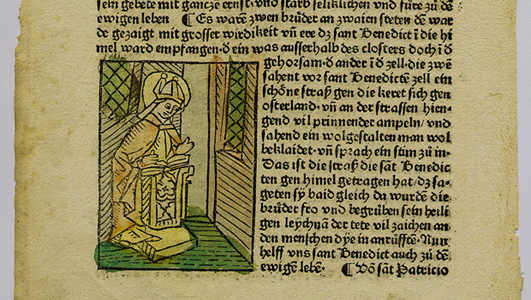 sein gebete mit gantzē ernst· vnd starb seliklichen vnd füre zů dē
ewigen leben ¶ Es warē zwen brůder an zwaien steten dē war
de gezaigt mit grosser wirdikeit vñ ere dz sant Benedict ī die hi
mel ward empfangen· d̄ ein was ausserhalb des closters doch ī d̄
gehorsam· d̄ ander ī d̄ zell· die zwē
sahent vor sant Benedictē zell ein
schöne straß gen die keret sich gen
osterland· vñ an der strassen hien-
gend vil prinnender ampeln/ vnd
sahend ein wolgestalten man wol
bekleidet· vñ sprach ein stim zů in·
Das ist die straß die sāt Benedic
ten gen himel getragen hat/ dz sa-
geten sÿ baid gleich da wurdē die
brůder fro vnd begrůben sein heili
gen leychnā der tete vil zaichen an
den menschen dÿe in anrůfftē· Nun
helff vns sant Benedict auch zů dē
ewigē lebē· ¶ Võ sāt Patricio